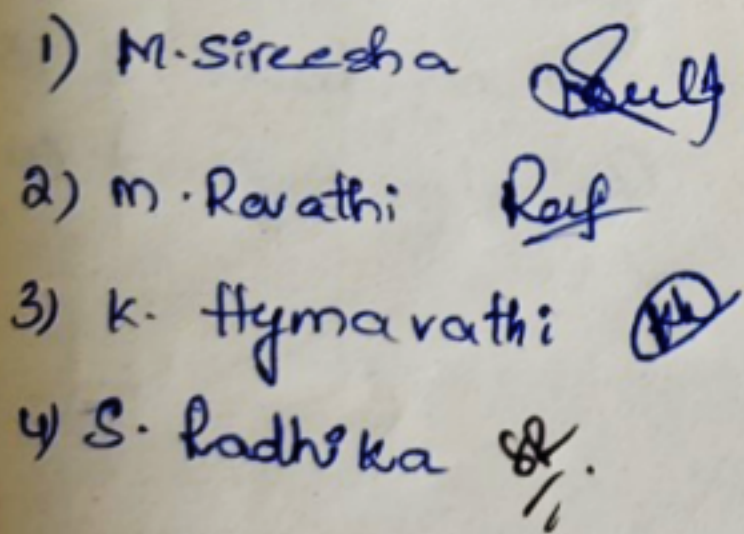 1) M. Sireesha
2) M. Revathi
3) K. Hymavathi
4) S. Radhika SR